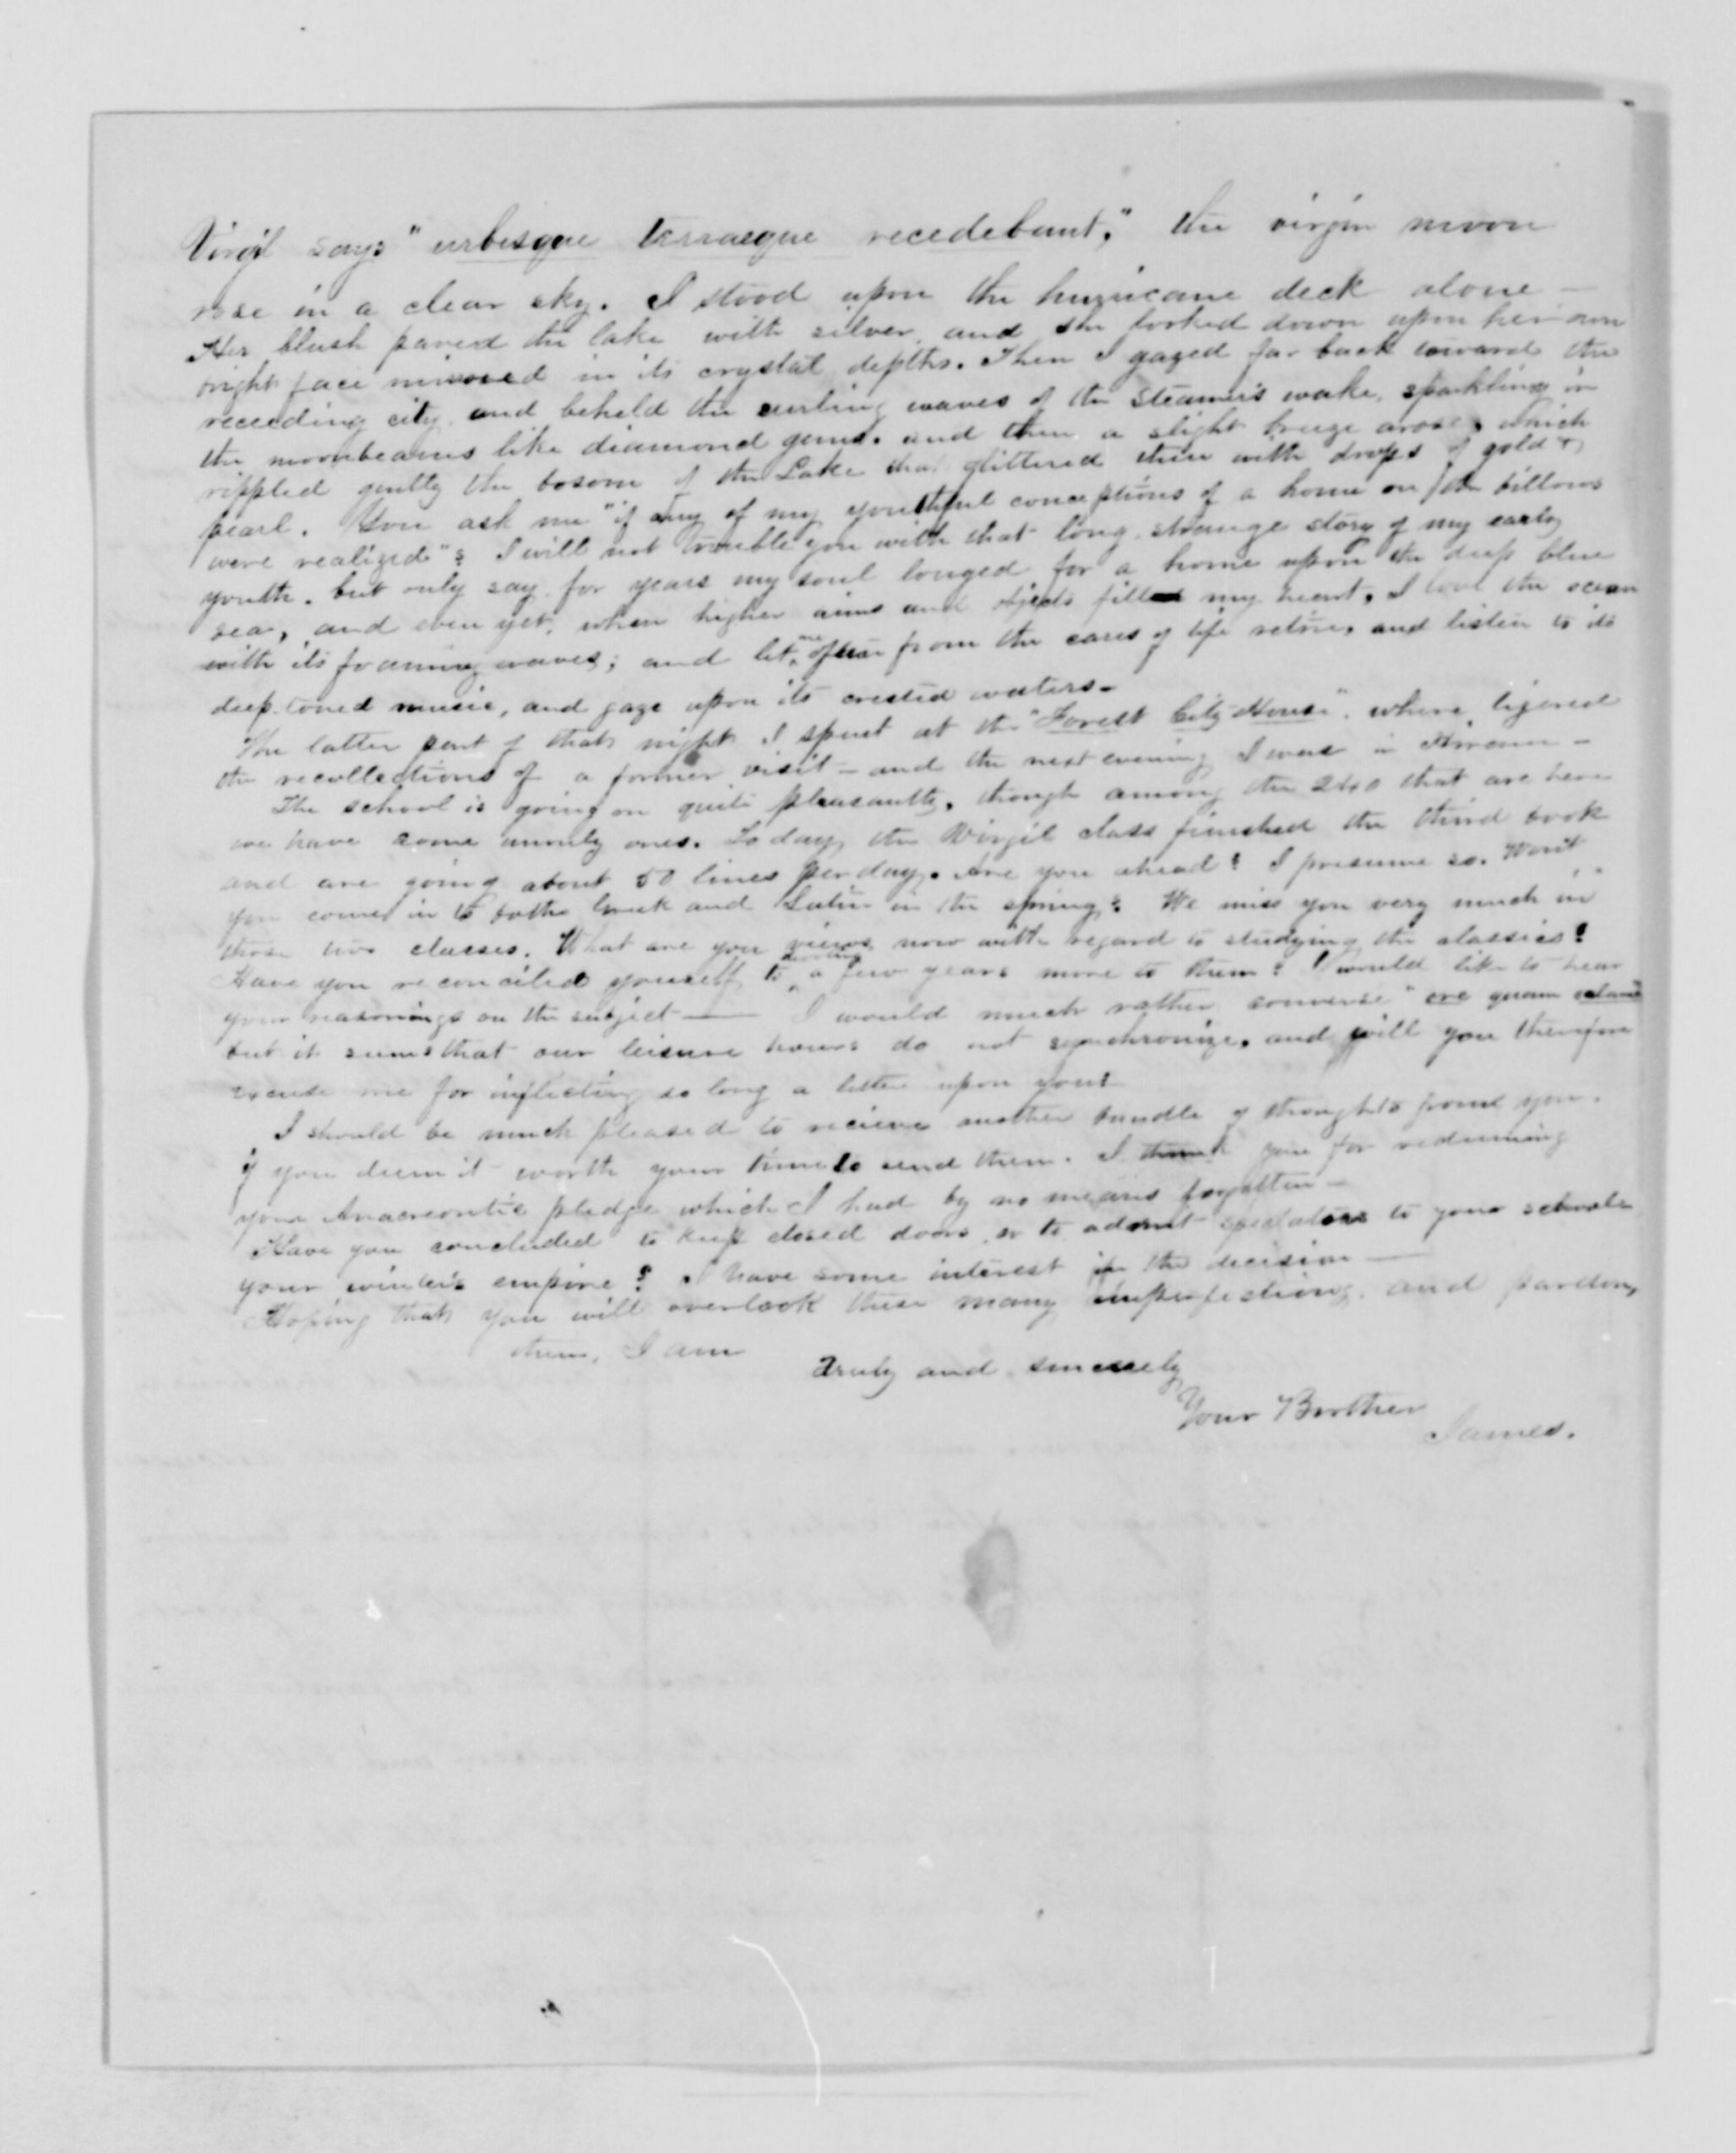 Virgil says "urbesque terraeque recedebant," the virgin moon
rose in a clear sky. I stood upon the hurricane deck alone —
Her blush paved the lake with silver, and she looked down upon her own
bright face mirrored in its crystal depths. Then I gazed far back toward the
receeding city, and beheld the curling waves of the steamer's wake, sparkling in
the moonbeams like diamond gems. and then a slight breeze arose, which
rippled gently the bosom of the Lake that glittered then with drops of gold &
pearl. You ask me "if any of my youthful conceptions of a home on the billows
were realized"? I will not trouble you with that long, strange story of my early
youth. but only say, for years my soul longed for a home upon the deep blue
sea, and even yet, when higher aims and objects filled my heart, I love the ocean
with its foaming waves; and let me often from the cares of life retire, and listen to its
deep-toned music, and gaze upon its crested waters—
The latter part of that night I spent at the "Forest City House", where ligered
the recollections of a former visit — and the next evening I was in Hiram —
The school is going on quite pleasantly, though among the 240 that are here
we have some unruly ones. To day, the Virgil class finished the third book
and are going about 50 lines per day. Are you ahead? I presume so. Won't
you come in to both Greek and Latin in the spring? We miss you very much in
those two classes. What are you views now with regard to studying the classics?
Have you reconciled yourself to devoting a few years more to them? I would like to hear
your reasonings on the subject —— I would much rather converse "ore quam
but it seems that our leisure hours do not synchronize, and will you therefore
excuse me for inflicting so long a letter upon you?
I should be much pleased to recieve another bundle of thoughts from you,
if you deem it worth your time to send them. I thank you for redeeming
your Anacreontic pledge which I had by no means forgotten —
Have you concluded to keep closed doors, or to admit spectators to your
your winter's empire? I have some interest in the decision ——
Hoping that you will overlook these many imperfections, and pardon
them, I am
Truly and sincerely
Your Brother
James.